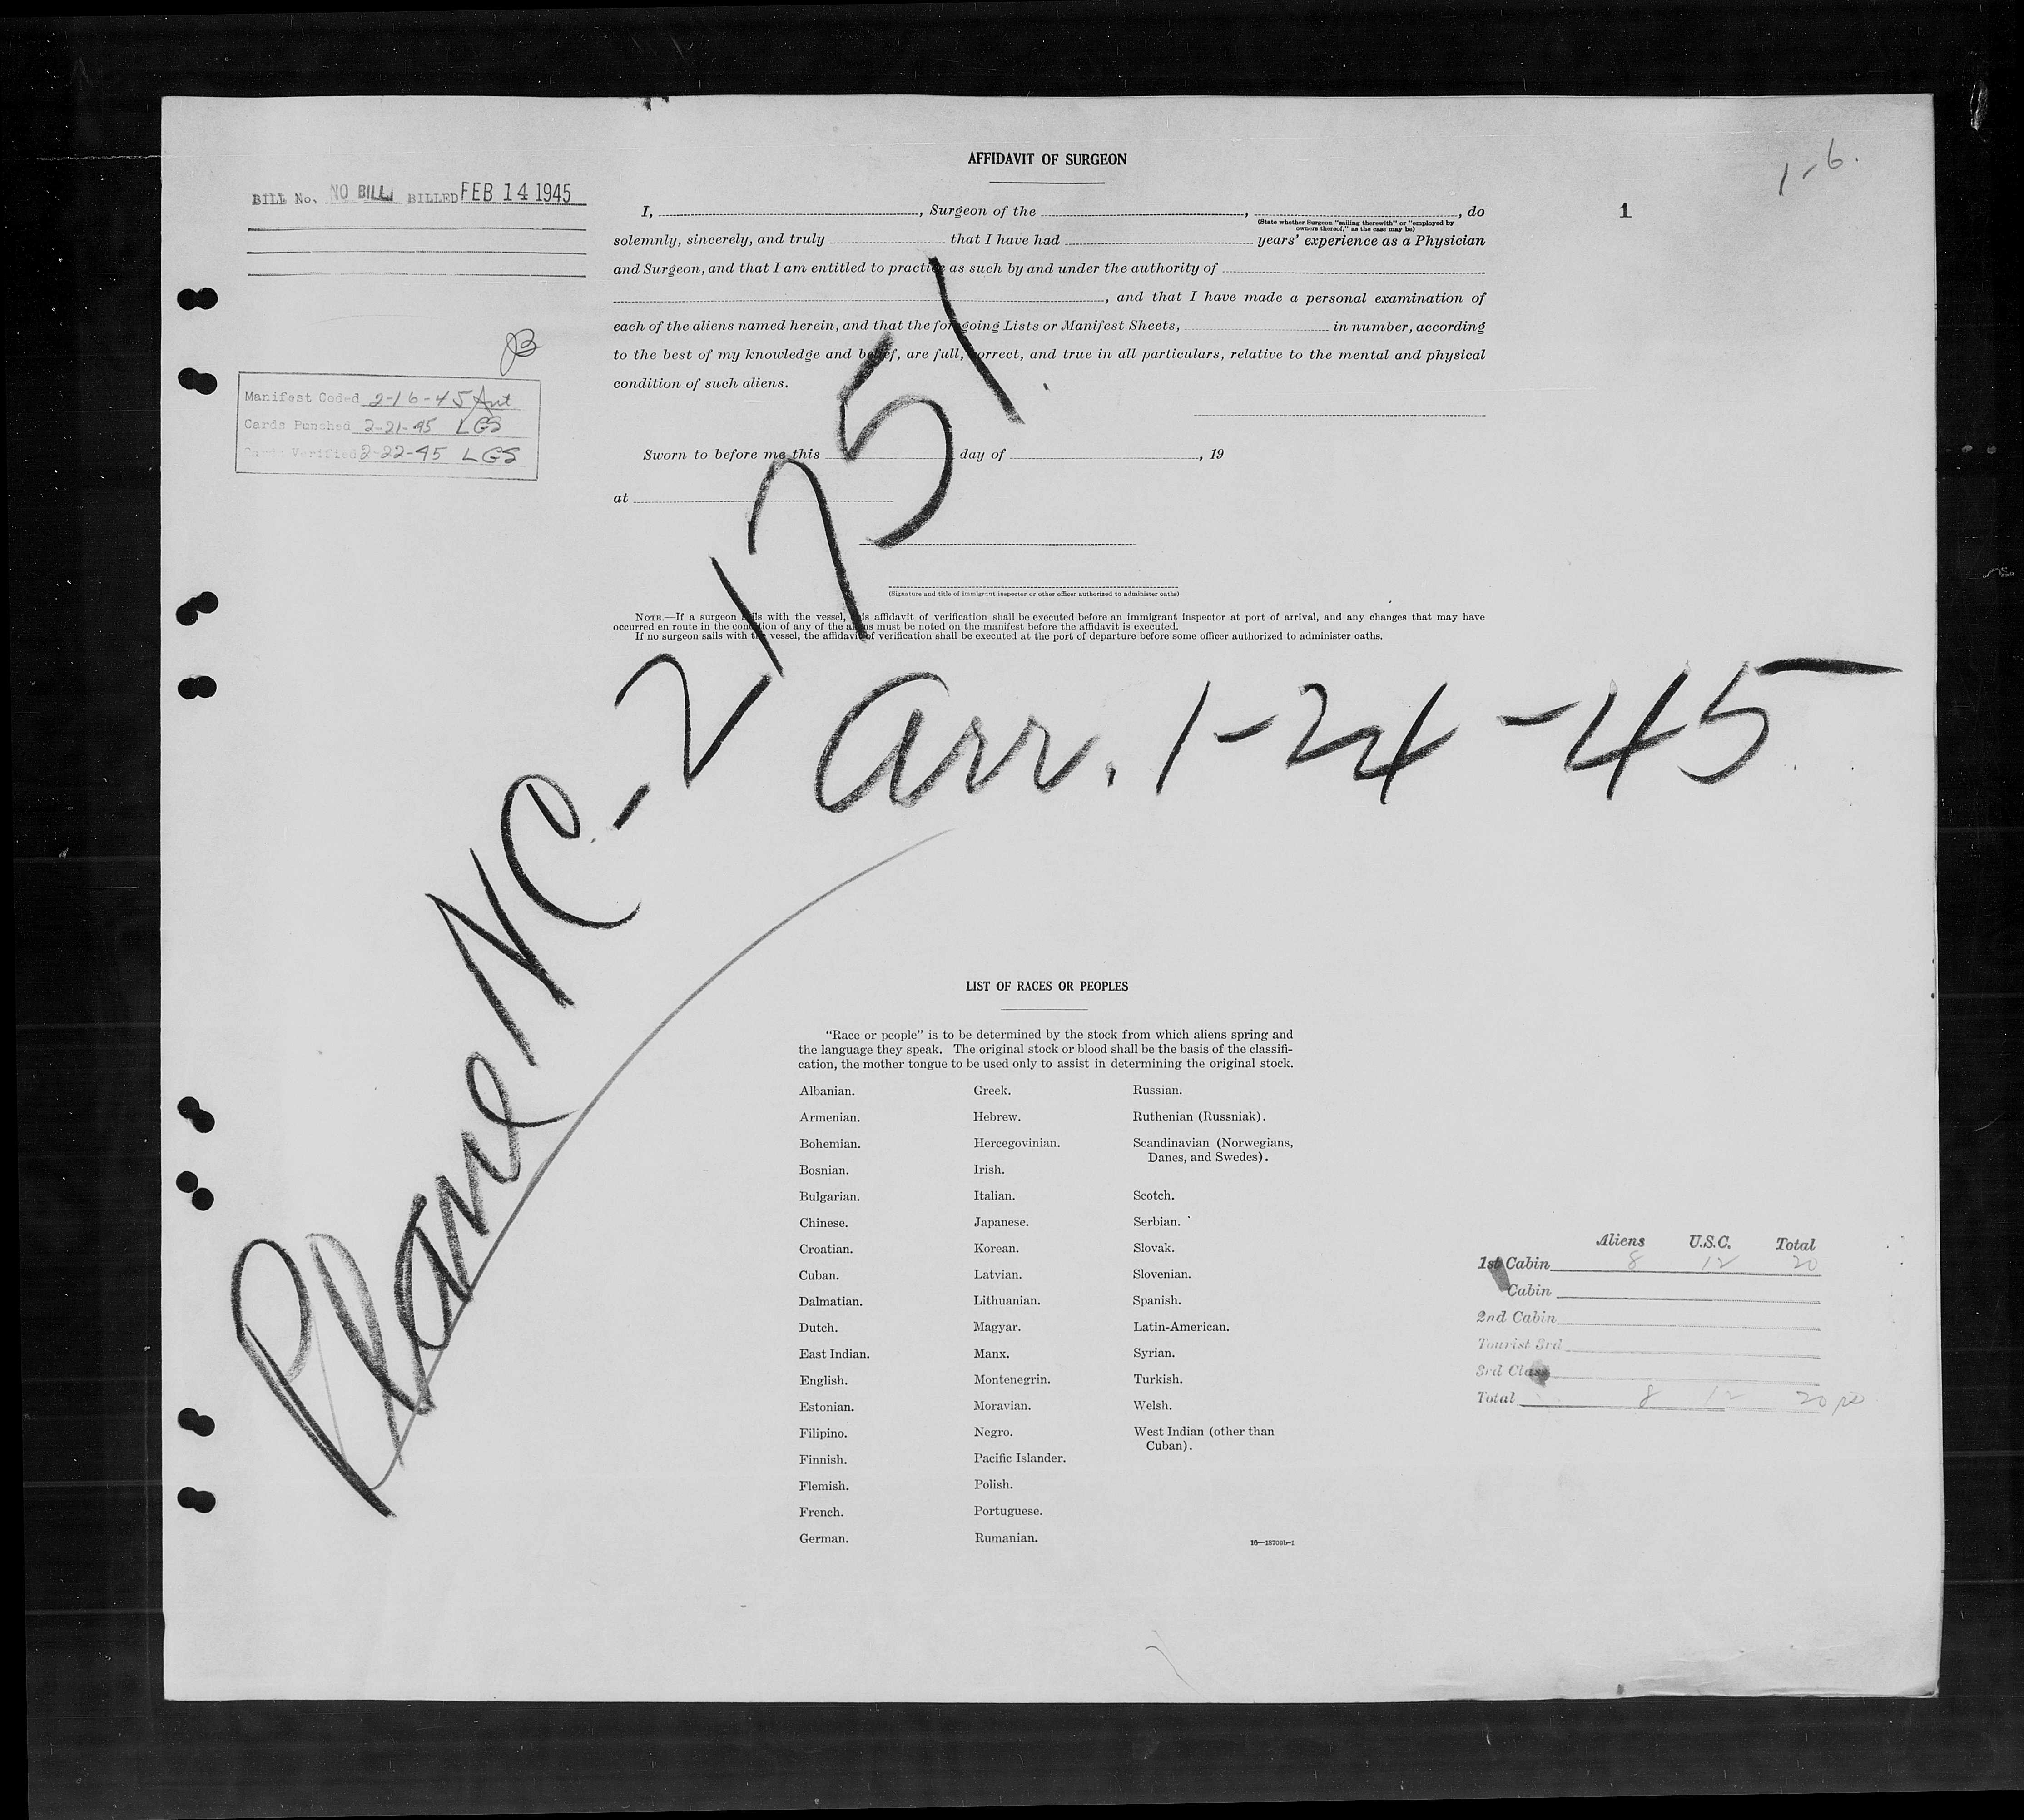 AFFIDAVIT OF SURGEON
1-6.
BILL No. NO BILL BILLED FEB 14 1945
1
I, , Surgeon of the , , do
(State whether Surgeon "sailing therewith" or "employed by owners thereof," as the case may be)
solemnly, sincerely, and truly that I have had years' experience as a Physician
and Surgeon, and that I am entitled to practice as such by and under the authority of
, and that I have made a personal examination of
each of the aliens named herein, and that the foregoing Lists or Manifest Sheets, in number, according
to the best of my knowledge and belief, are full, correct, and true in all particulars, relative to the mental and physical
condition of such aliens.
Manifest Coded 2-16-45
Cards Punched 2-21-45 LGS
Cards Verified 2-22-45 LGS
Sworn to before me this day of , 19
at
(Signature and title of immigrant inspector or other officer authorized to administer oaths)
NOTE.—If a surgeon sails with the vessel, this affidavit of verification shall be executed before an immigrant inspector at port of arrival, and any changes that may have
occurred en route in the condition of any of the aliens must be noted on the manifest before the affidavit is executed.
If no surgeon sails with the vessel, the affidavit of verification shall be executed at the port of departure before some officer authorized to administer oaths.
Plane NC-21751
arr. 1-24-45
LIST OF RACES OR PEOPLES
"Race or people" is to be determined by the stock from which aliens spring and
the language they speak. The original stock or blood shall be the basis of the classifi-
cation, the mother tongue to be used only to assist in determining the original stock.
Albanian. Greek. Russian.
Armenian. Hebrew. Ruthenian (Russniak).
Bohemian. Hercegovinian. Scandinavian (Norwegians,
Danes, and Swedes).
Bosnian. Irish.
Bulgarian. Italian. Scotch.
Chinese. Japanese. Serbian.
Croatian. Korean. Slovak.
Cuban. Latvian. Slovenian.
Dalmatian. Lithuanian. Spanish.
Dutch. Magyar. Latin-American.
East Indian. Manx. Syrian.
English. Montenegrin. Turkish.
Estonian. Moravian. Welsh.
Filipino. Negro. West Indian (other than
Cuban).
Finnish. Pacific Islander.
Flemish. Polish.
French. Portuguese.
German. Rumanian.
16—18709b-1
Aliens U.S.C. Total
1st Cabin 8 12 20
Cabin
2nd Cabin
Tourist 3rd
3rd Class
Total 8 12 20